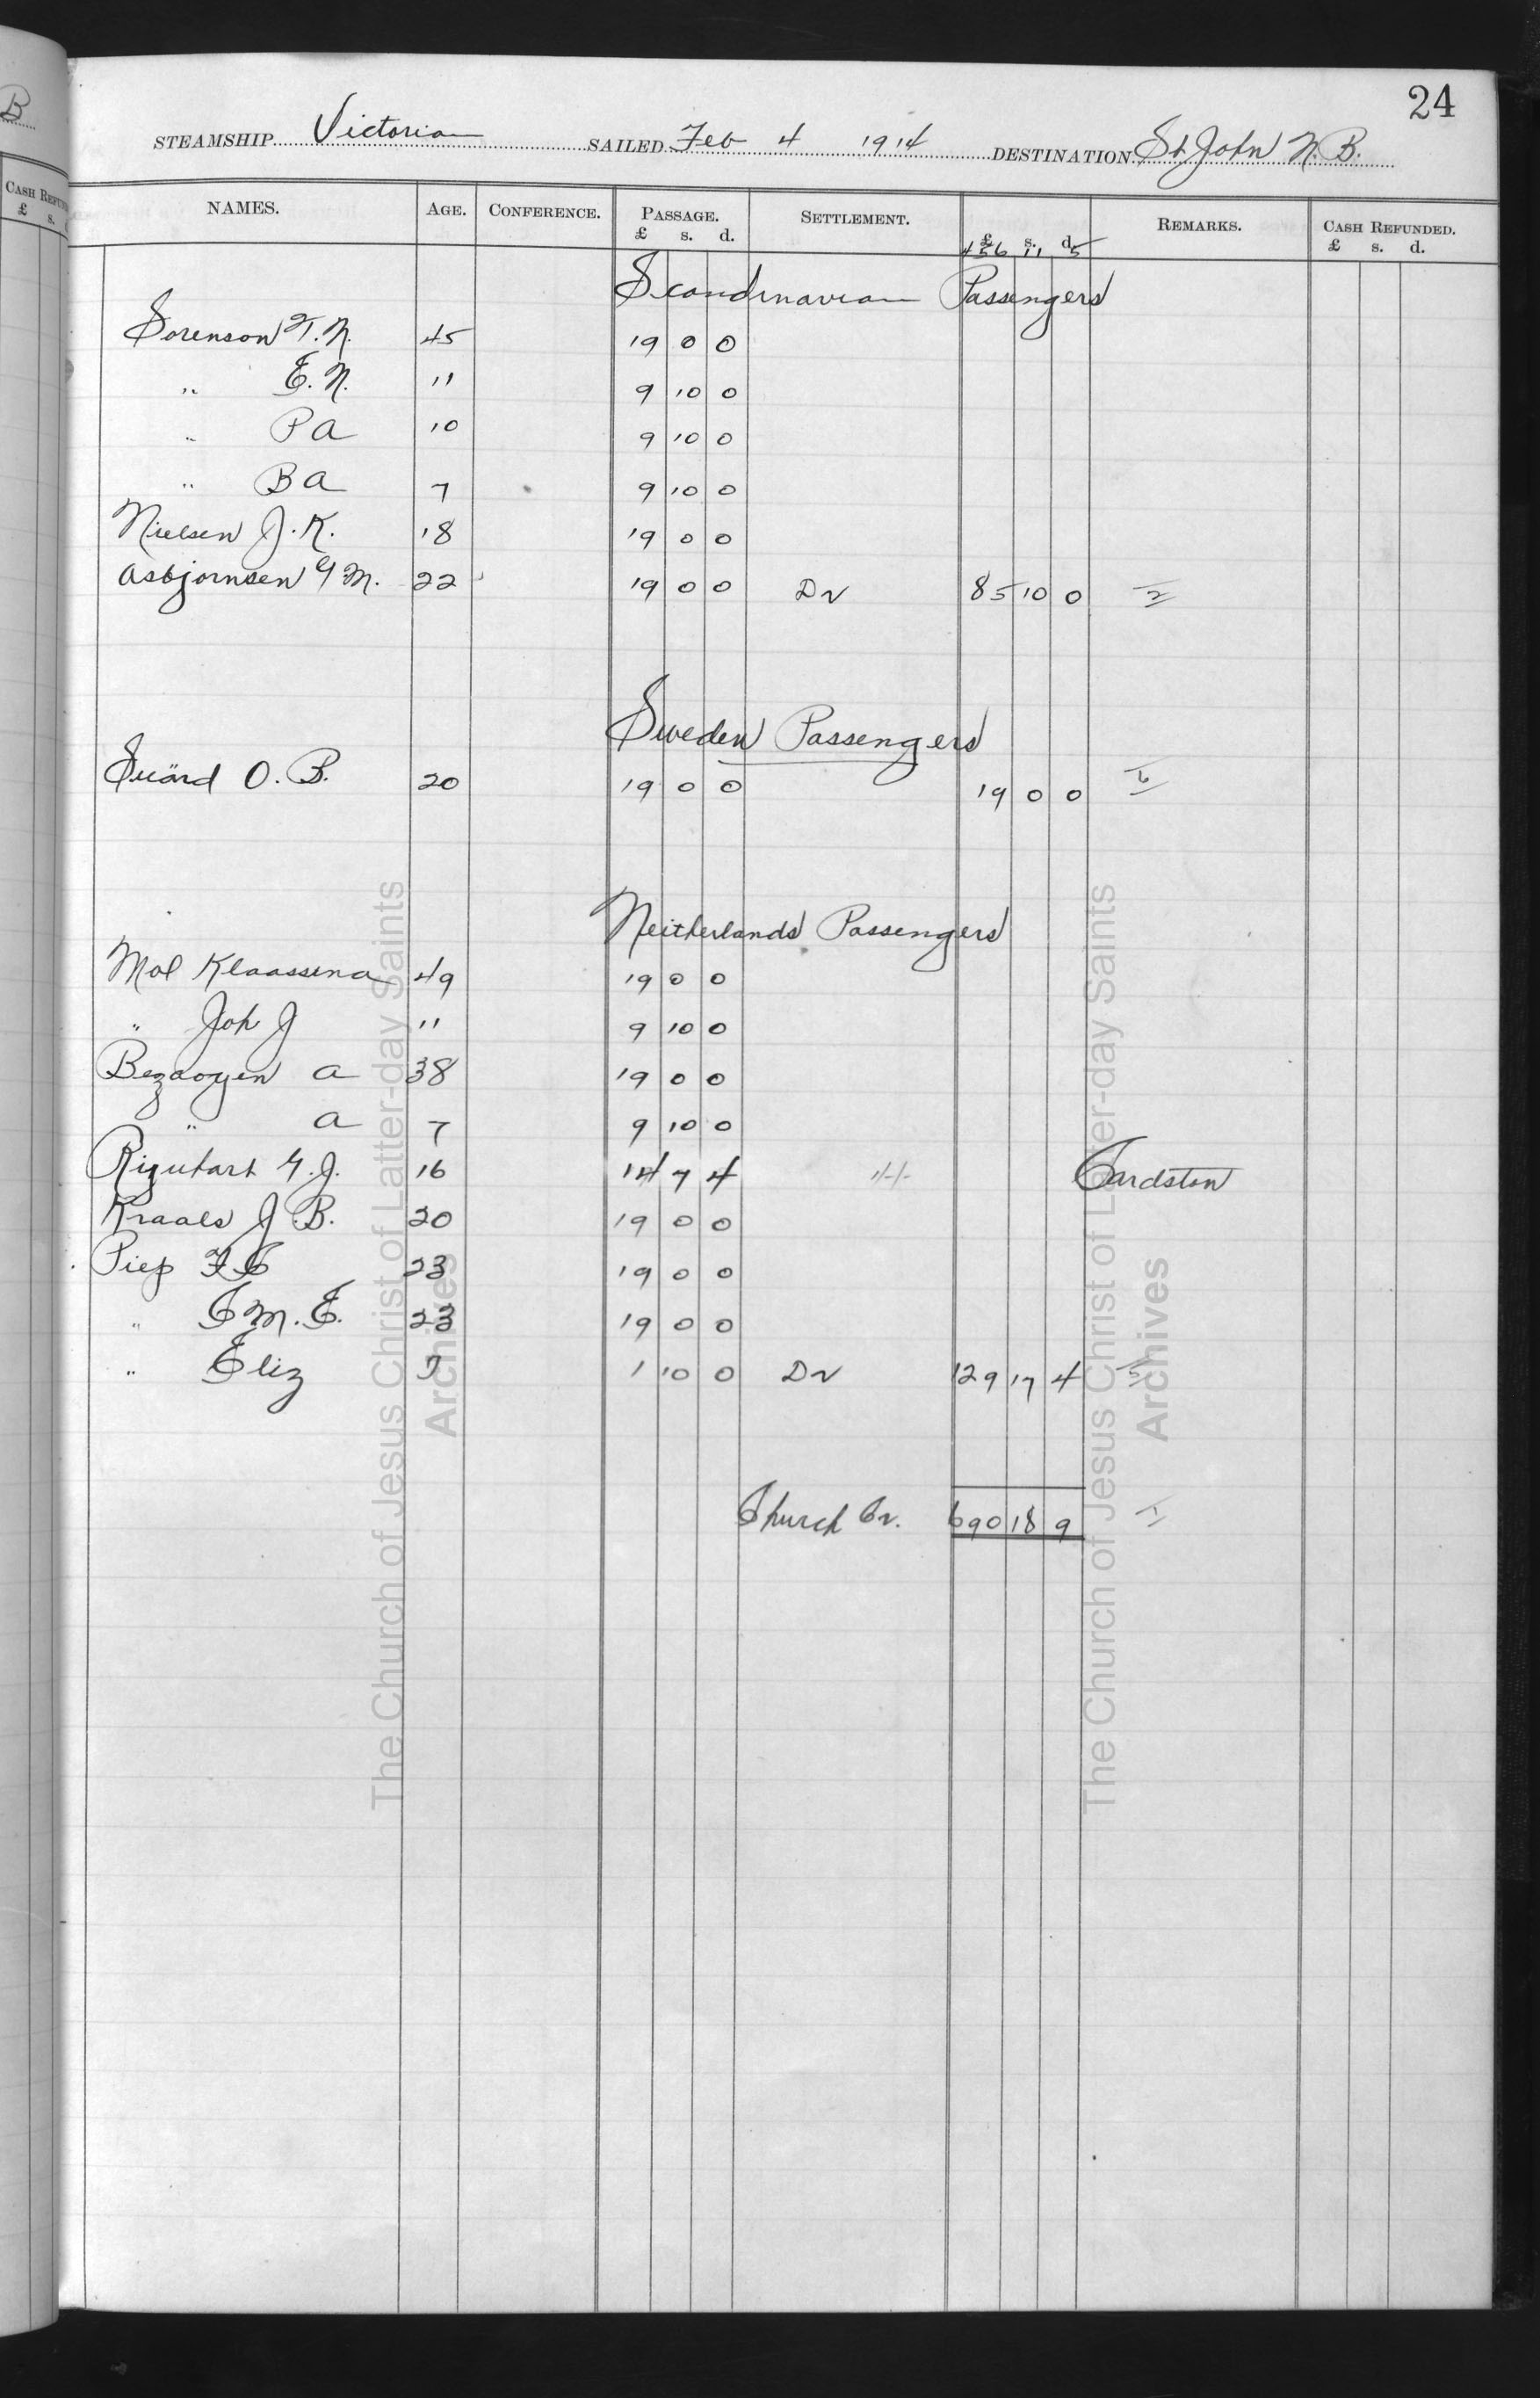 24
STEAMSHIP Victorian SAILED Feb 4 1914 DESTINATION St John N. B.
B
CASH
£ s.
NAMES. AGE. CONFERENCE. PASSAGE. £ s. d. SETTLEMENT. £ s. d. REMARKS. CASH REFUNDED. £ s. d.
456 11 5
Scandinavian Passengers
Sorenson T. N. 45 19 0 0
" E. N. 11 9 10 0
" P A 10 9 10 0
" B A 7 9 10 0
Nielsen J. K. 18 19 0 0
Asbjornsen G M. 22 19 0 0 Dr 85 10 0 2
Sweden Passengers
Suärd O. B. 20 19 0 0 19 0 0 6
Neitherlands Passengers
Mol Klaassena 49 19 0 0
" Joh J 11 9 10 0
Bezaoyen A 38 19 0 0
" A 7 9 10 0
G. J. 16 14 7 4 Cardston
Kraals J. B. 20 19 0 0
Piep F C 23 19 0 0
" C M. E. 23 19 0 0
" Eliz 1 10 0 Dr 129 17 4 5
Church Cr. 690 18 9 1
The Church of Jesus Christ of Latter-day Saints
Archives
The Church of Jesus Christ of Latter-day Saints
Archives